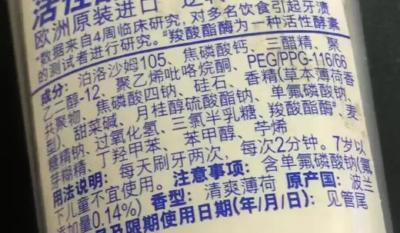 活性
欧洲原装进口
"数据来自4周临床研究,对多名饮食引起牙渍
的测试者进行研究。"羧酸酯酶"为一种活性酵素
成分:泊洛沙姆105、焦磷酸钙、三醋精、聚
乙二醇-12、聚乙烯吡咯烷酮、PEG/PPG-116/66
共聚物、焦磷酸四钠、硅石、香精(草本薄荷香
型)、甜菜碱、月桂醇硫酸酯钠、单氟磷酸钠、
糖精钠、过氧化氢、三氯半乳糖、羧酸酯酶"、麦
芽糊精、丁羟甲苯、苯甲醇、苧烯
用法说明:每天刷牙两次,每次2分钟。7岁以
下儿童不宜使用。注意事项:含单氟磷酸钠(氟
添加量0.14%) 香型:清爽薄荷 原产国:波兰
及限期使用日期(年/月/日):见管尾